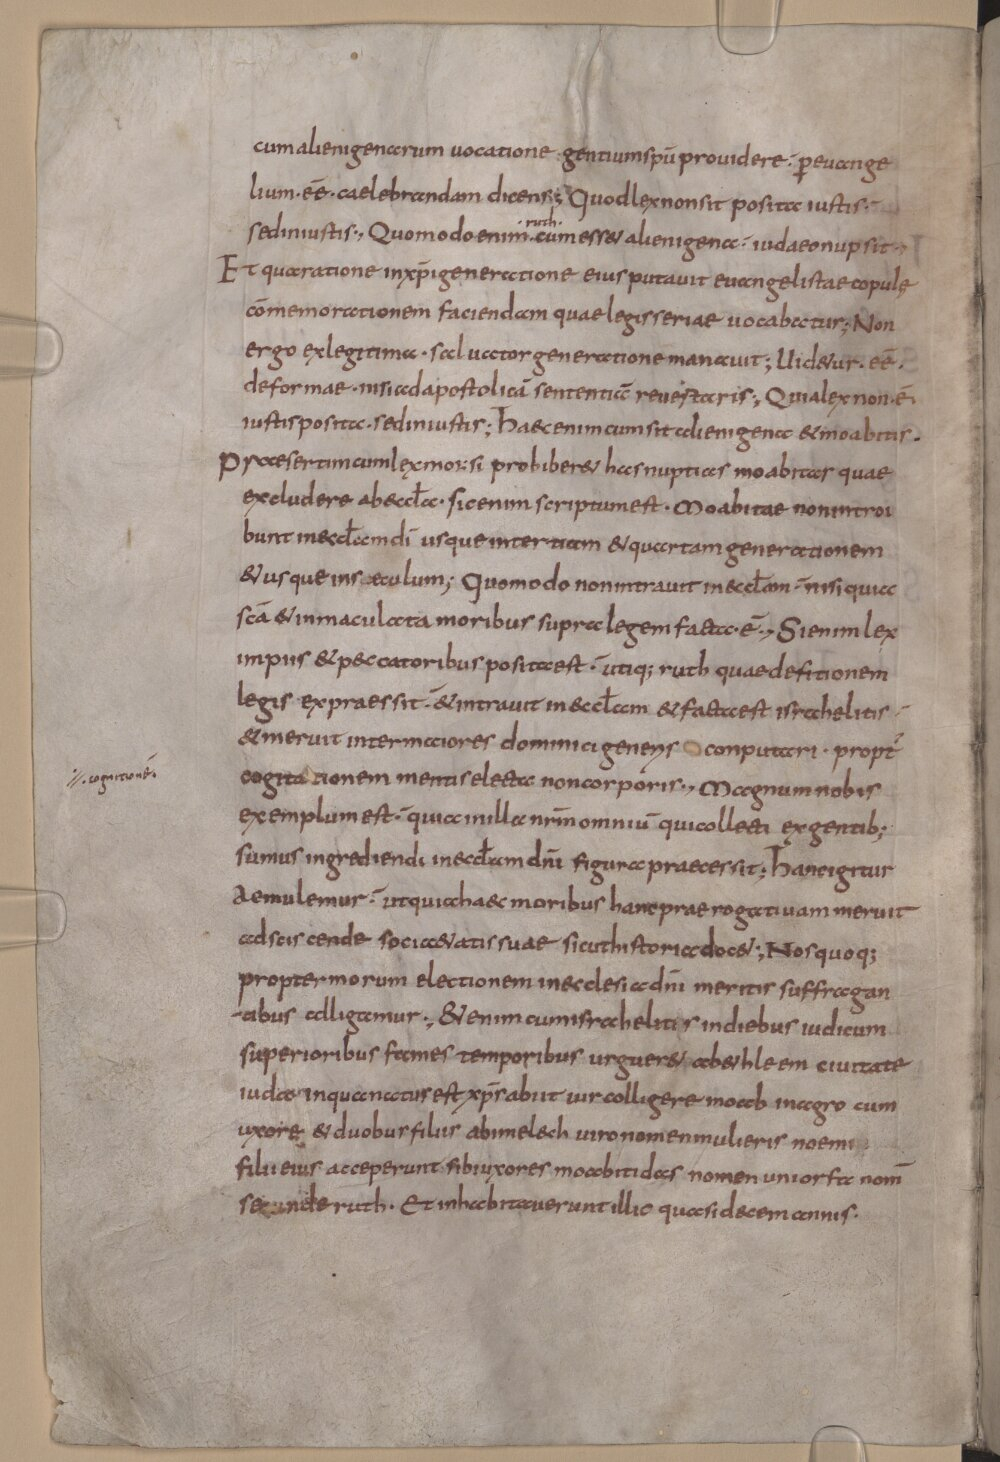 cum alienigenarum uocatione gentium spū prouidere · ꝑ euange
lium · eē · caelebrandam dicens; Quod lex non sit posita iustis ·
sed iniustis ·, Quomodo enim · ruth · cum esset alienigena · iudaeo nupsit ·,
Et qua ratione in xp̄i generatione eius putauit euangelista e copulę
cōmemorationem faciendam quae legis seriae uocabatur; Non
ergo ex legitima · saluator generatione manauit; Uidetur · eē ·
deformae · nisi ad apostolicā sententiā reuertaris ·, Quia lex non · ē ·
iustis posita · sed iniustis; Haec enim cum sit alienigena & moabitis ·
Praesertim cum lex mosi prohiberet has nuptias moabitas quae
excludere ab eccl̄a · sic enim scriptum est · Moabitae non introi
bunt in eccl̄am dī usque in tertiam & quartam generationem
& usque in saeculum; Quomodo non intrauit in eccl̄am · nisi quia
scā & inmaculata moribus supra legem facta · ē ·, Si enim lex
impiis & peccatoribus posita est · utiq; ruth quae defitionem
legis expraessit · & intrauit in eccl̄am & facta est israhelitis ·
& meruit inter maiores dominici generis conputari · propt̄
cogitationem mentis electa non corporis ·, Magnum nobis
·//· cognitionē ·
exemplum est · quia in illa nr̄m omniū qui collecti ex gentib;
sumus ingrediendi in eccl̄am dn̄i figura praecessit; Hanc igitur
Aemulemur · ut quia haec moribus hanc praerogatiuam meruit
adsciscendę societatis suae sicut historia docet; Nos quoq;
propter morum electionem in eclesia dn̄i meritis suffragan
tibus adligamur ·, & enim cum israhelitis in diebus iudicum
superioribus fames temporibus urgueret a bethleem ciuitate
iuda in qua natus est xp̄s abiit uir colligere moab in agro cum
uxore & duobus filiis abimelech uiro nomen mulieris noemi
filii eius acceperunt sibi uxores moabitidas nomen uni orfa nom̄
secunde ruth · Et inhabitauerunt illic quasi decem annis ·